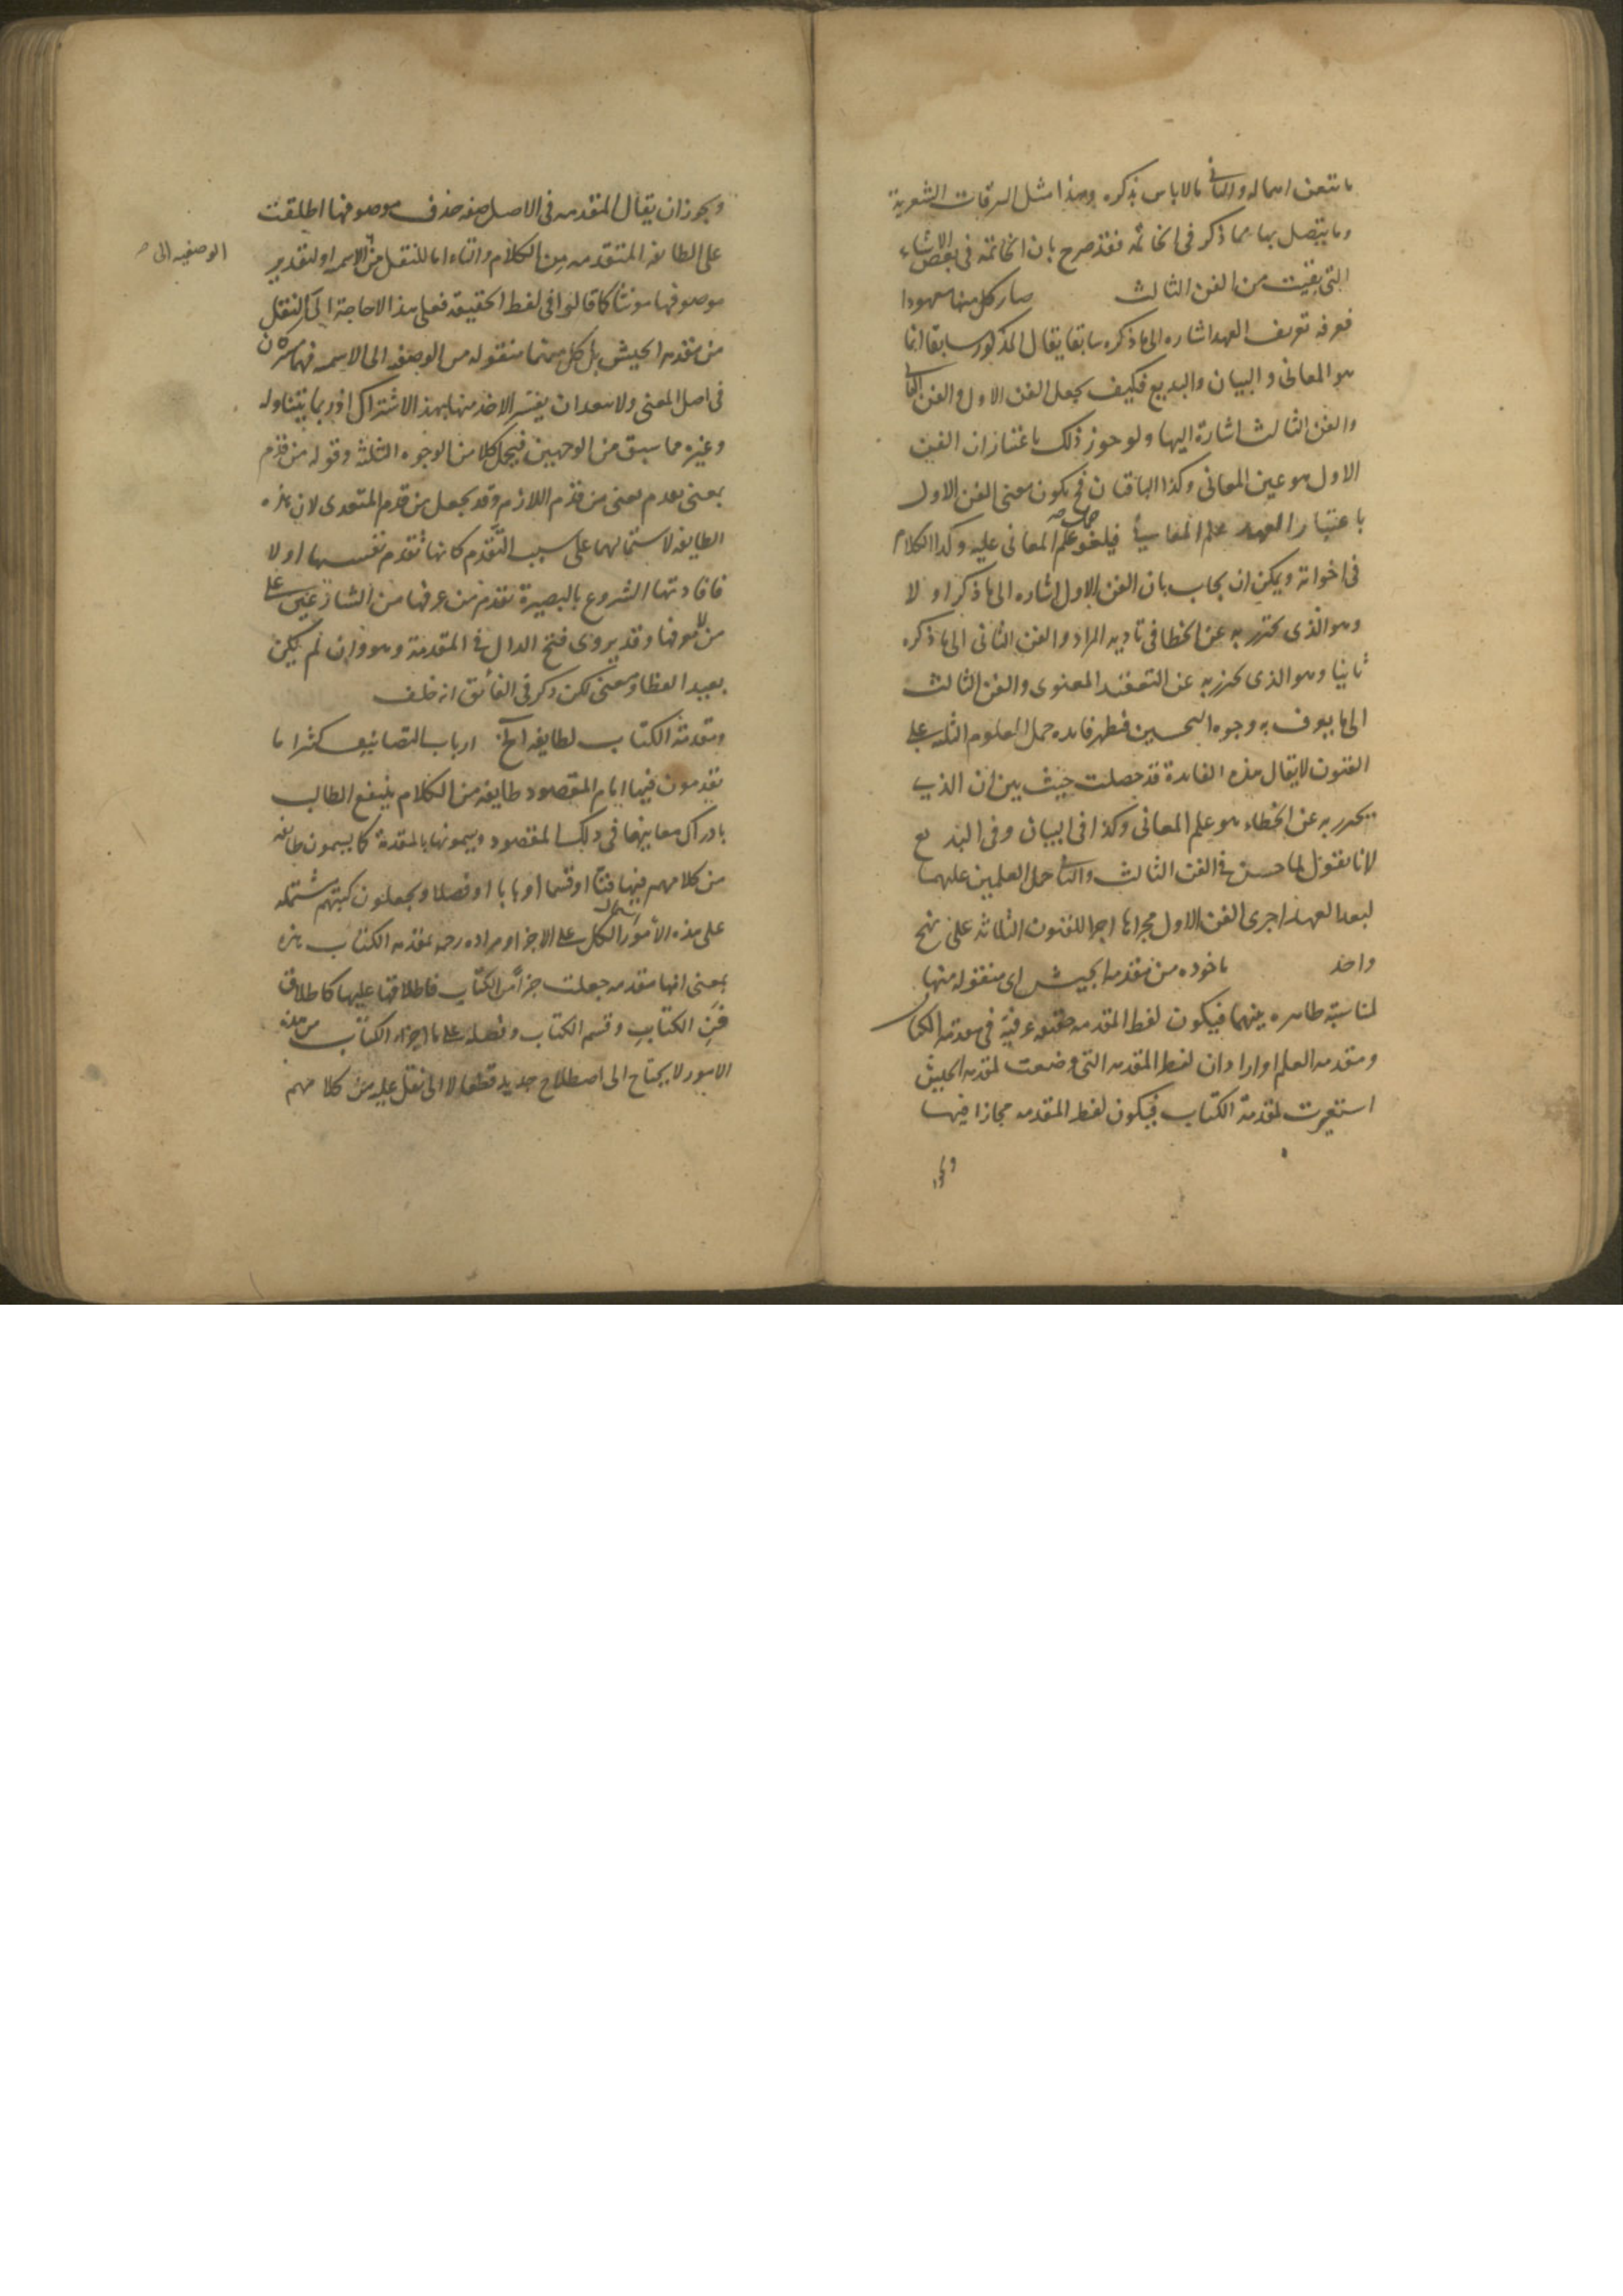 ما يتعين اهماله والثانى ما لا باس بذكره وهذا مثل السرقات الشعرية
وما يتصل بها مما ذكر فى الخاتمة فقد صرح بان الخاتمة فى بعض الاشياء
التى بقيت من الفن الثالث صار كل منها معهودا
فعرفه تعريف العهد اشاره الى ما ذكره سابقا يقال المذكور سابقا انما
هو المعانى و البيان والبديع فكيف يجعل الفن الاول و الفن الثانى
والفن الثالث اشارة اليها ولو جوز ذلك باعتبار ان الفن
الاول هو عين المعانى وكذا الباقيان فح يكون معنى الفن الاول
باعتبار العهد علم المعانى فيلغو حمل علم المعانى عليه وكذا الكلام
فى اخواته ويمكن ان يجاب بان الفن الاول اشاره الى ما ذكر اولا
وهو الذى يحترز به عن الخطا فى تاديه المراد والفن الثانى الى ما ذكره
ثانيا وهو الذى يحترز به عن التعقيد المعنوى والفن الثالث
الى ما يعرف به وجوه التحسين فظهر فايده حمل العلوم الثلثه على
الفنون لا يقال هذه الفايدة قد حصلت حيث بين ان الذى
يحترز به عن الخطاء هو علم المعانى وكذا فى البيان وفى البديع
لانا نقول لما حسن فى الفن الثالث والثانى حمل العلمين عليهما
لبعد العهد اجرى الفن الاول مجراها اجرا للفنون الثلاثه على نهج
واحد ماخوده من مقدمه الجيش اى منقوله منها
لمناسبة ظاهره بينهما فيكون لفظ المقدمه حقيقه عرفية فى مقدمه الكتاب
ومقدمه العلم او اراد ان لفظ المقدمه التى وضعت لمقدمه الجيش
استعيرت لمقدمة الكتاب فيكون لفظ المقدمه مجازا فيها
ويجوز ان يقال المقدمه فى الاصل صفه حذف موصوفها اطلقت
على الطايفه المتقدمه من الكلام والتاء اما للنقل من الاسميه او لتقدير
الوصفيه الى
موصوفها مونثا كما قالوا فى لفظ الحقيقه فعلى هذا لا حاجة الى النقل
من مقدمه الجيش بل كل منهما منقوله من الوصفيه الى الاسميه فهما مشتركان
فى اصل المعنى ولا يبعد ان يفسر الاخذ منها بهذا الاشتراك او بما يتناوله
وغيره مما سبق من الوجهين فيحمل كلا من الوجوه الثلثة وقوله من قدم
بمعنى تقدم يعنى من قدم اللازم وقد يجعل من قدم المتعدى لان هذه
الطايفه لاشتمالها على سبب التقدم كانها تقدم نفسها اولا
فافادتها الشروع بالبصيرة تقدم من عرفها من الشارعين على
من لا يعرفها وقد يروى فتح الدال فى المقدمة وهو وان لم يكن
بعيدا لفظا ومعنى لكن ذكر فى الفائق انه خلف
ومقدمة الكتاب لطايفه الخ ارباب التصانيف كثيرا ما
يقدمون فيها امام المقصود طايفه من الكلام ينتفع الطالب
بادراك معانيها فى ذلك المقصود ويسمونها بالمقدمة كما يسمون طايفه
من كلامهم فيها فنا او قسما او بابا او فصلا ويجعلون كتبهم مشتمله
على هذه الامور اشتمال الكل على الاجزا ومراده رحمه بمقدمه الكتاب هذه
بمعنى انها مقدمه جعلت جزا من الكتاب فاطلاقها عليها كاطلاق
فن الكتاب وقسم الكتاب وفصله على ما هو اجزاء الكتاب من هذه
الامور لا يحتاج الى اصطلاح جديد قطعا لا الى نقل عليه من كلامهم